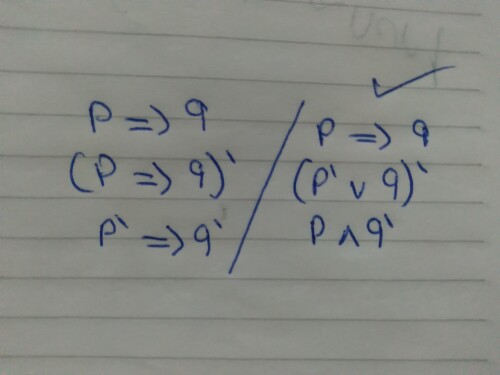 P => q
(P => q)'
P' => q'
P => q
(P' v q)'
P ∧ q'